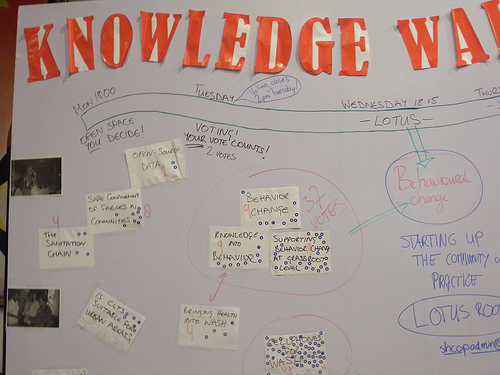 KNOWLEDGE WA
MON 18:00
TUESDAY
Voting closes
2pm tuesday!
WEDNESDAY 18:15
THURS
- LOTUS -
OPEN SPACE
YOU DECIDE!
VOTING!
YOUR VOTE COUNTS!
2 VOTES
OPEN-SOURCE
DATA
SAFE
OF FAECES IN
COMMUNITIES
8
4
THE
SANITATION
CHAIN
BEHAVIOR
CHANGE
9
37
VOTES
KNOWLEDGE
INTO
BEHAVIOR
9
SUPPORTING
BEHAVIOR CHANGE
AT GRASSROOT
LEVEL
Behavioural
change
STARTING UP
THE COMMUNITY O
PRACTICE
LOTUS ROO
shcopadmin@
IS CLTS
SUITABLE FOR
URBAN AREAS?
BRINGING HEALTH
INTO WASH
4
PHONES
FOR
WASH